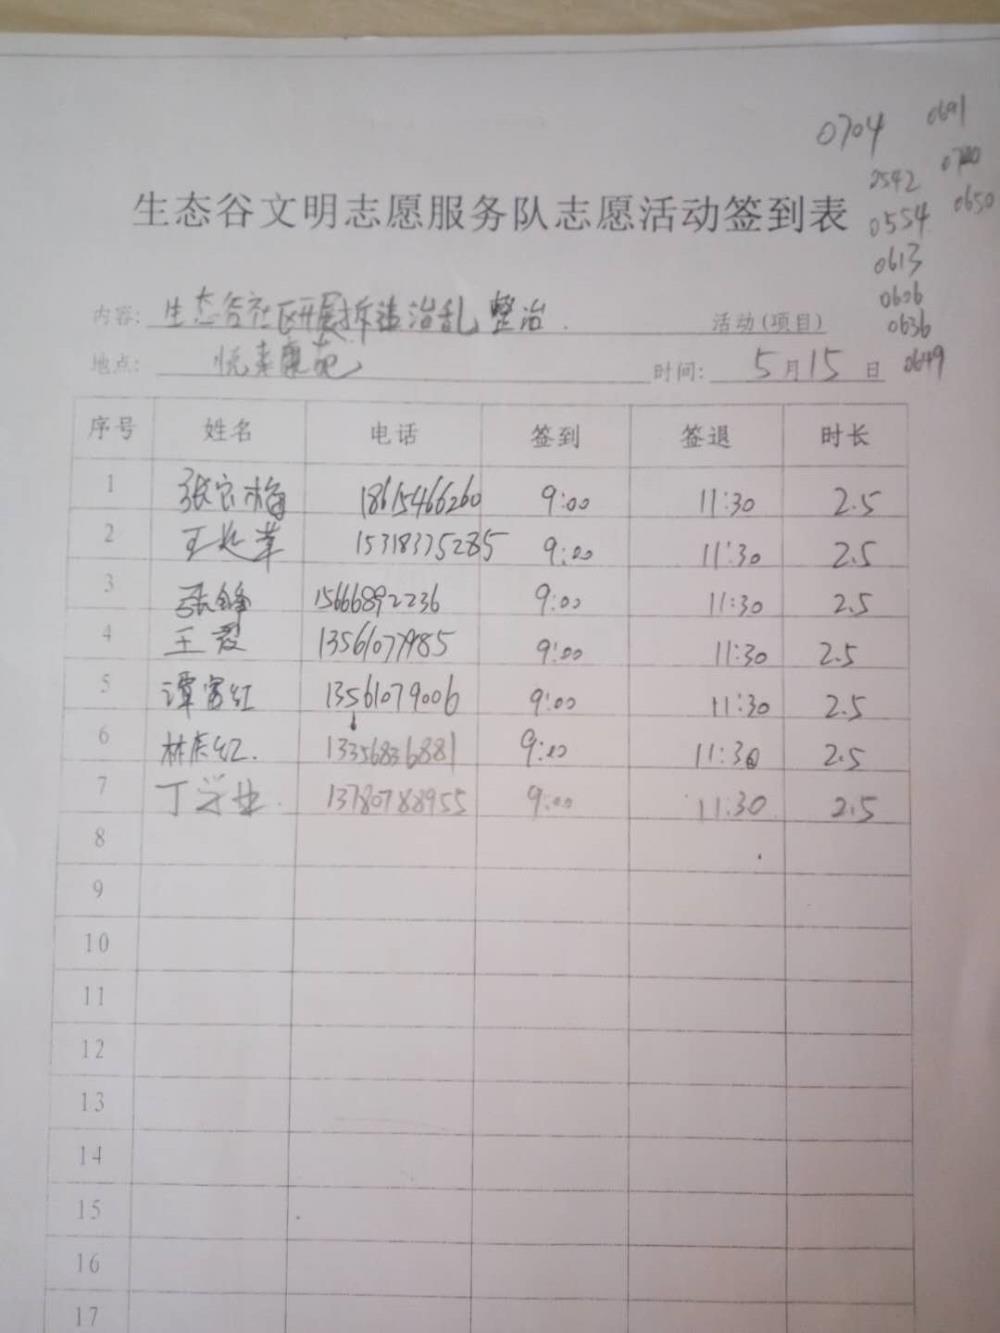 0704 0691
0700
2542
0650
生态谷文明志愿服务队志愿活动签到表
0554
0613
0606
0636
0649
内容: 生态谷社区开展拆违治乱整治 活动(项目)
地点: 时间: 5月15日
序号 姓名 电话 签到 签退 时长
1 张宗梅 18615466260 9:00 11:30 2.5
2 15318375285 9:00 11:30 2.5
3 张锋 15666892236 9:00 11:30 2.5
4 王君 13561077985 9:00 11:30 2.5
5 谭富红 13561079006 9:00 11:30 2.5
6 13356836881 9:00 11:30 2.5
7 丁学业 13780788955 9:00 11:30 2.5
8
9
10
11
12
13
14
15
16
17